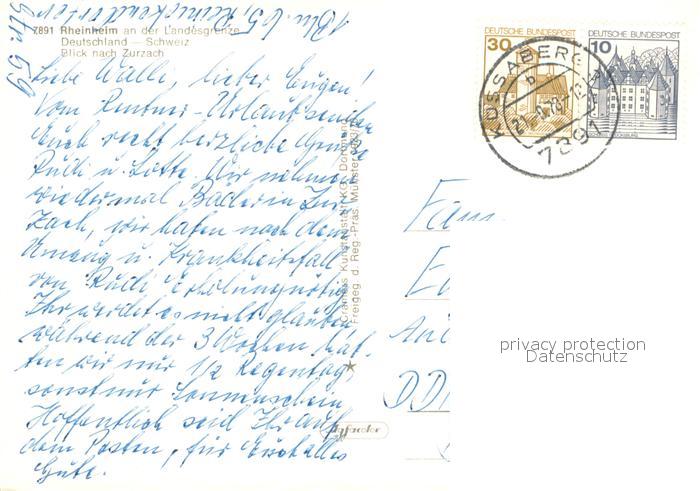 1 Bln. 65, Reinickendorfer
Str. 59
7891 Rheinheim an der Landesgrenze
Deutschland — Schweiz
Blick nach Zurzach
Liebe Walli, lieber Eugen!
Vom Rentner-Urlaub senden
Euch recht herzliche Grüße
Rudi u. Lotte. Wir nehmen
wiedermal Bäder in Zur
zach, wir haben nach dem
Umzug u. Krankheitsfall
von Rudi Erholung nötig
Ihr werdet es nicht glauben,
während der 3 Wochen hat-
ten wir nur 1/2 Regentag
sonst nur Sonnenschein
Hoffentlich seid Ihr auf
dem Posten, für Euch alles
Gute.
Cramers Kunstanstalt KG, Dortmund
Freigeg. d. Reg.-Präs. Münster
DEUTSCHE BUNDESPOST
30
DEUTSCHE BUNDESPOST
10
KÜSSABERG
7891
Fam.
DD
privacy protection
Datenschutz